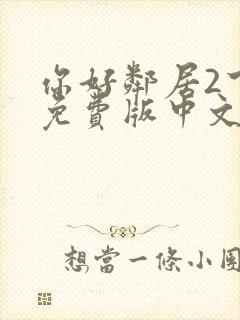 你好鄰居2
免費版中文
想當一條小